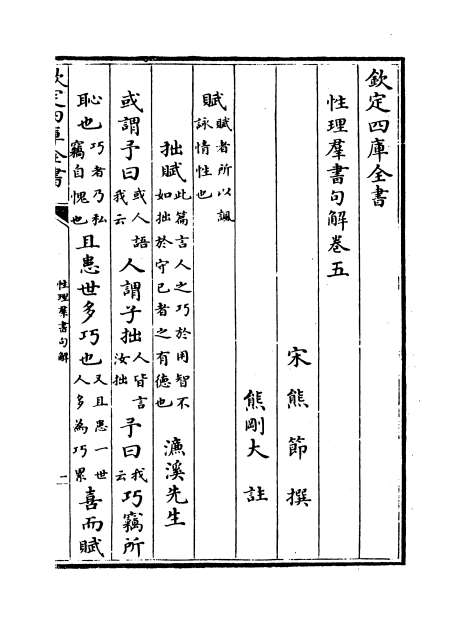 欽定四庫全書
性理羣書句解卷五
宋熊節撰
熊剛大註
賦賦者所以諷詠情性也
拙賦此篇言人之巧於用智不如拙於守已者之有德也濂溪先生
或謂予曰或人語我云人謂子拙人皆言汝拙予曰我云巧竊所
恥也巧者乃私竊自愧也且患世多巧也又且患一世人多為巧累喜而賦
欽定四庫全書
性理羣書句解
一